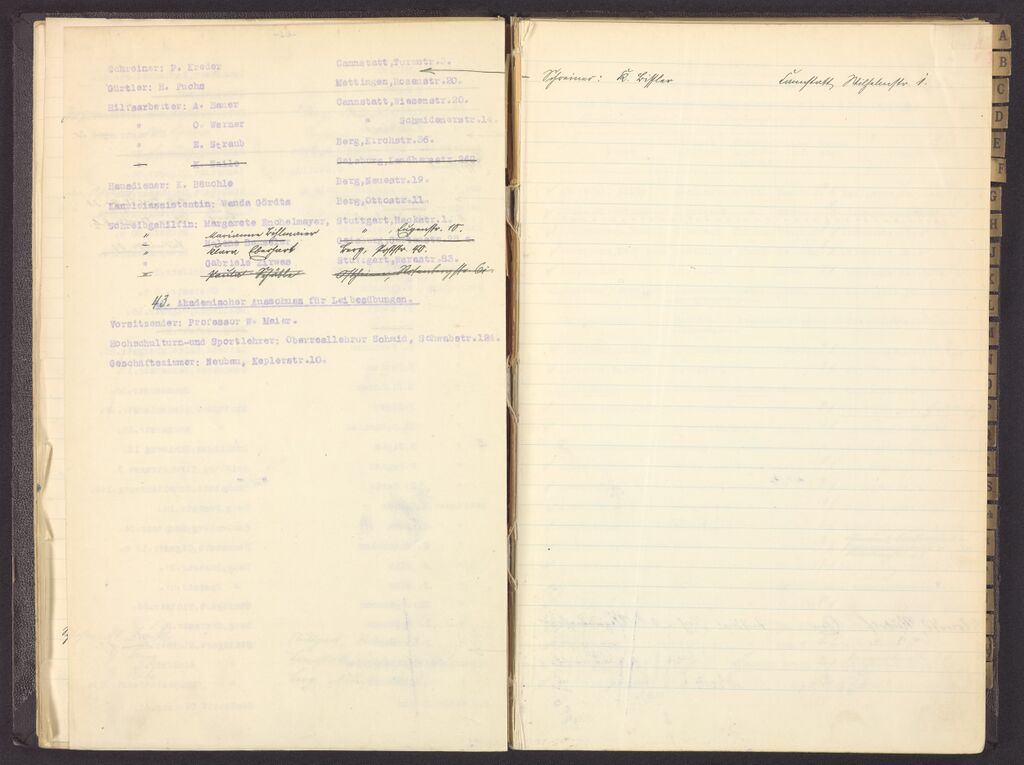 Schreiner: P. Kreder Cannstatt, Turmstr.3.
Gürtler: H. Fuchs Mettingen, Rosenstr.20.
Hilfsarbeiter: A. Bauer Cannstatt, Wiesenstr.20.
" O. Werner " Schmidenerstr.14.
" E. Straub Berg, Kirchstr.36.
Gaisburg, Landhausstr.260.
Hausdiener: K. Bäuchle Berg, Neuestr.19.
Kanzleiassistentin: Wanda Gördts Berg, Ottostr.11.
Schreibgehilfin: Margarete Enchelmayer, Stuttgart, Neckstr.1.
" Marianne " , Eugenstr. 10.
" Klara Eberhart Berg, Poststr. 40.
" Gabriele Zirwes Stuttgart, Werastr.83.
" Paula
43. Akademischer Ausschuss für Leibesübungen.
Vorsitzender: Professor W. Maier.
Hochschulturn-und Sportlehrer: Oberreallehrer Schmid, Schwabstr.124.
Geschäftszimmer: Neubau, Keplerstr.10.
Schreiner: K. Cannstatt, Wilhelmstr. 1.
A
B
C
D
E
F
G
H